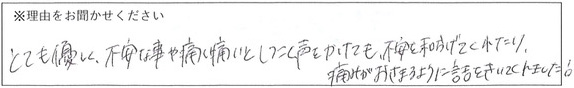 ※理由をお聞かせください
とても優しく、不安な事や痛い痛いとしつこく声をかけても、不安を和らげてくれたり、
痛みがおさまるように話をきいてくれました。